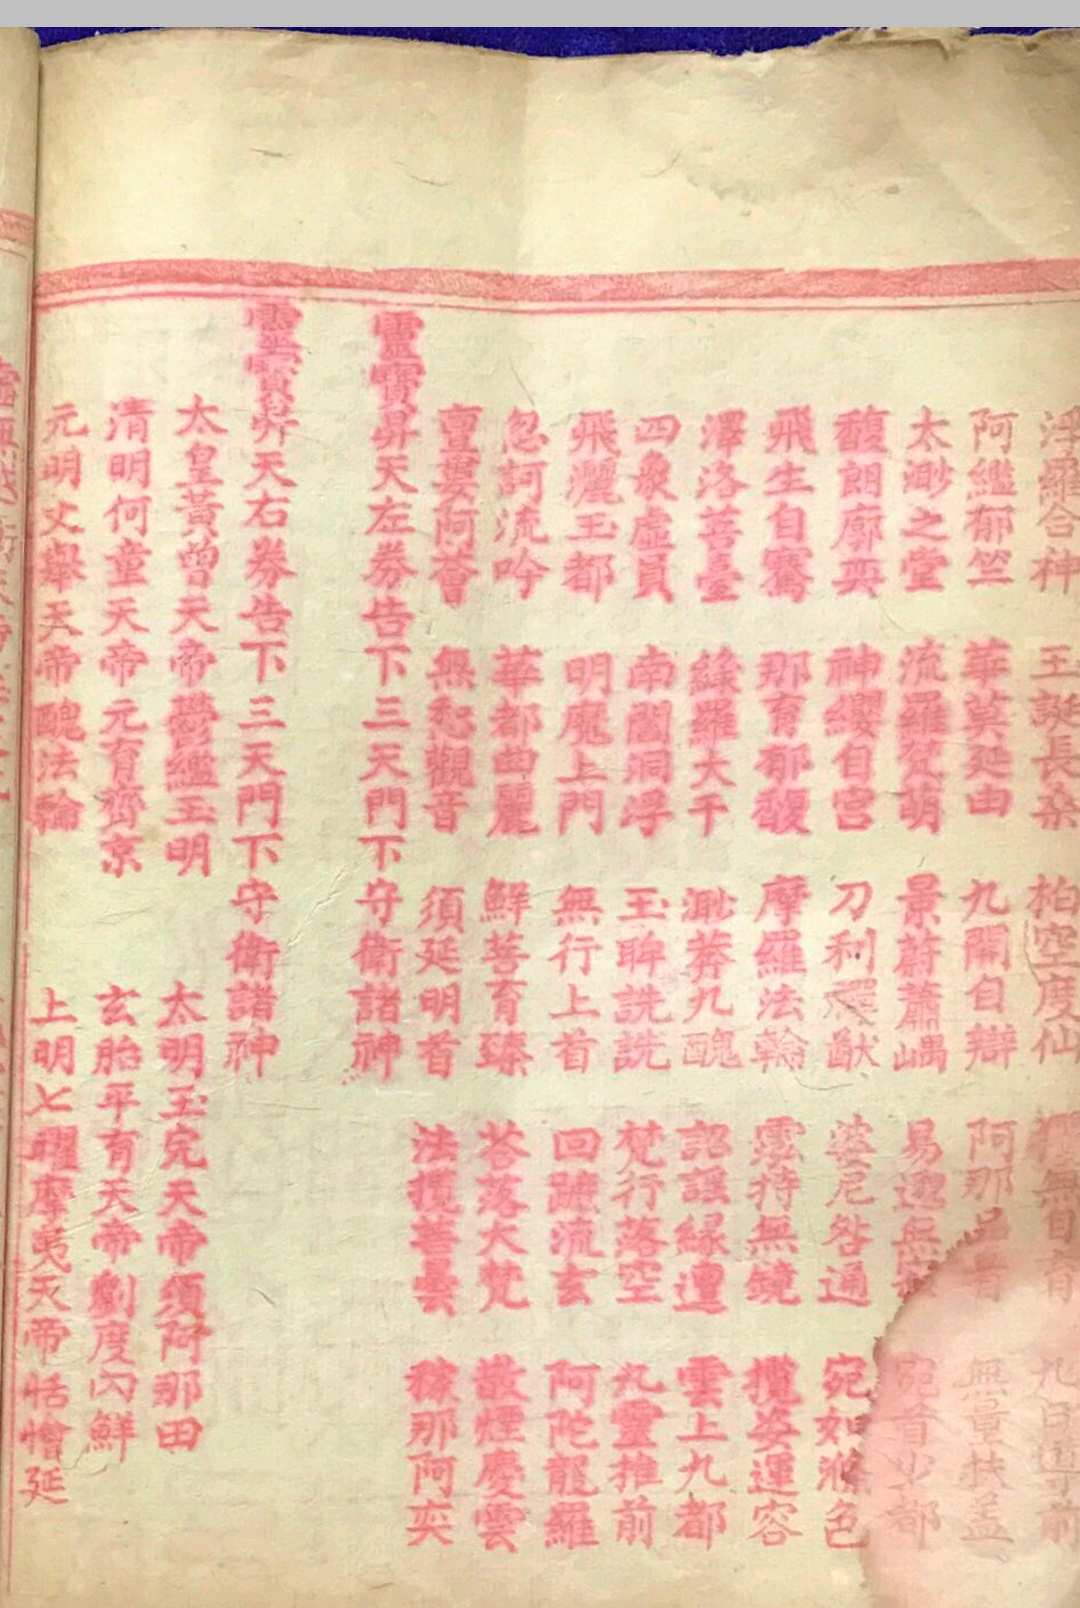 羅合神 王誕長桑 柏空度仙 無自育 九日導前
阿繼郁竺 華莫延由 九開自辯 阿那 無量扶蓋
太渺之堂 流羅梵萌 景蔚蕭嵎 易邈無 都
馥朗廓奕 神纓自宮 刀利禪猷 婆尼咎通 宛如 色
飛生自騫 那育郁馥 摩羅法輪 霐持無鏡 攬姿運容
澤洛菩臺 綠羅大千 渺莽九醜 韶謡緣邅 雲上九都
四衆虛員 南閻洞浮 玉眸詵詵 梵行落空 九靈推前
飛灑玉都 明魔上門 無行上首 回蹠流玄 阿陀龍羅
忽訶流吟 華都曲麗 鮮菩育臻 荅落大梵 散煙慶雲
亶婁阿薈 無惒觀音 須延明首 法攬菩曇 稼那阿奕
靈寶昇天左券告下三天門下守衛諸神
靈寶昇天右券告下三天門下守衛諸神
太皇黃曾天帝鬱繿玉明 太明玉完天帝須阿那田
清明何童天帝元育齊京 玄胎平育天帝劉度內鮮
元明文舉天帝醜法輪 上明七曜摩夷天帝恬懀延